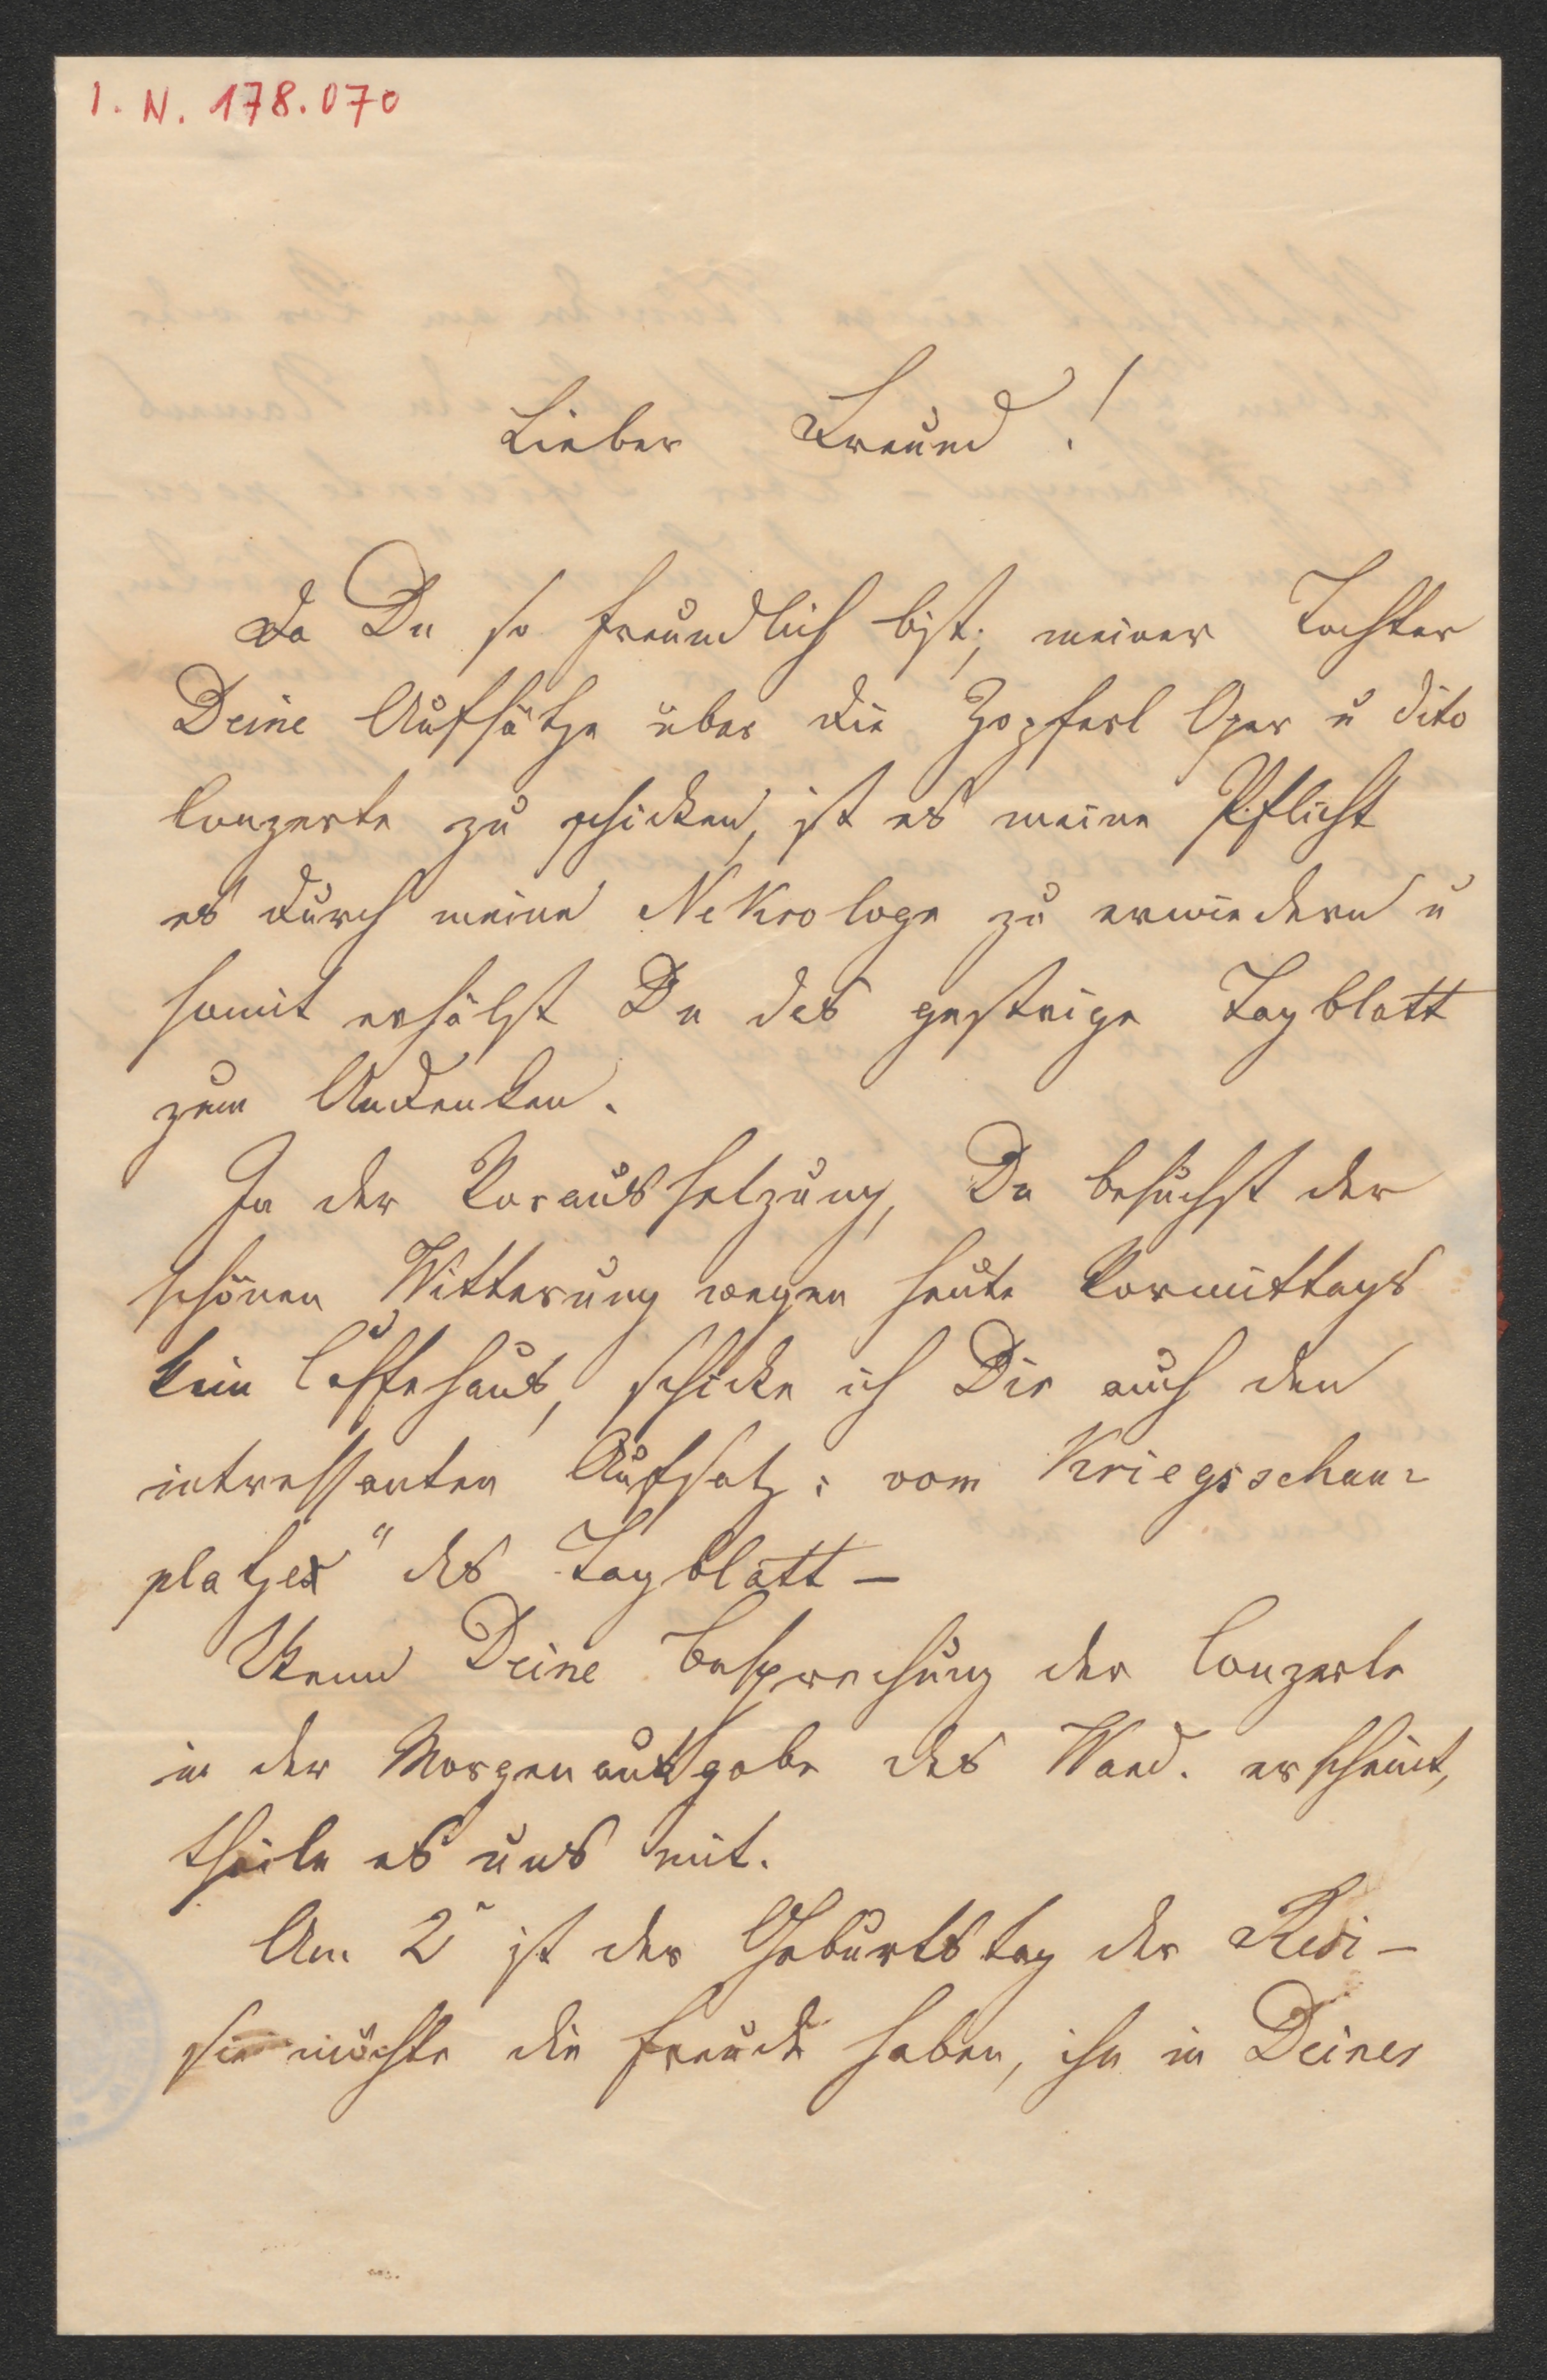 I. N. 178.070
Lieber Freund!
Da Du so freundlich bist, meiner Tochter
Deine Aufsätze über die Zopferl Oper u dito
Conzerte zu schicken, ist es meine Pflicht
es durch meine Nekrologe zu erwiedern u
somit erhälst Du das gestrige Tagblatt
zum Andenken.
In der Voraussetzung, Du besuchst der
schönen Witterung wegen heute Vormittags
kein Caffehaus, schicke ich Dir auch den
intressanten Aufsatz: vom Kriegsschau=
platze" des Tagblatt —
Wenn Deine Besprechung der Conzerte
in der Morgenausgabe des Wand. erscheint,
theile es uns mit.
Am 2 ist der Geburtstag der Resi —
sie möchte die Freude haben, ihn in Deiner